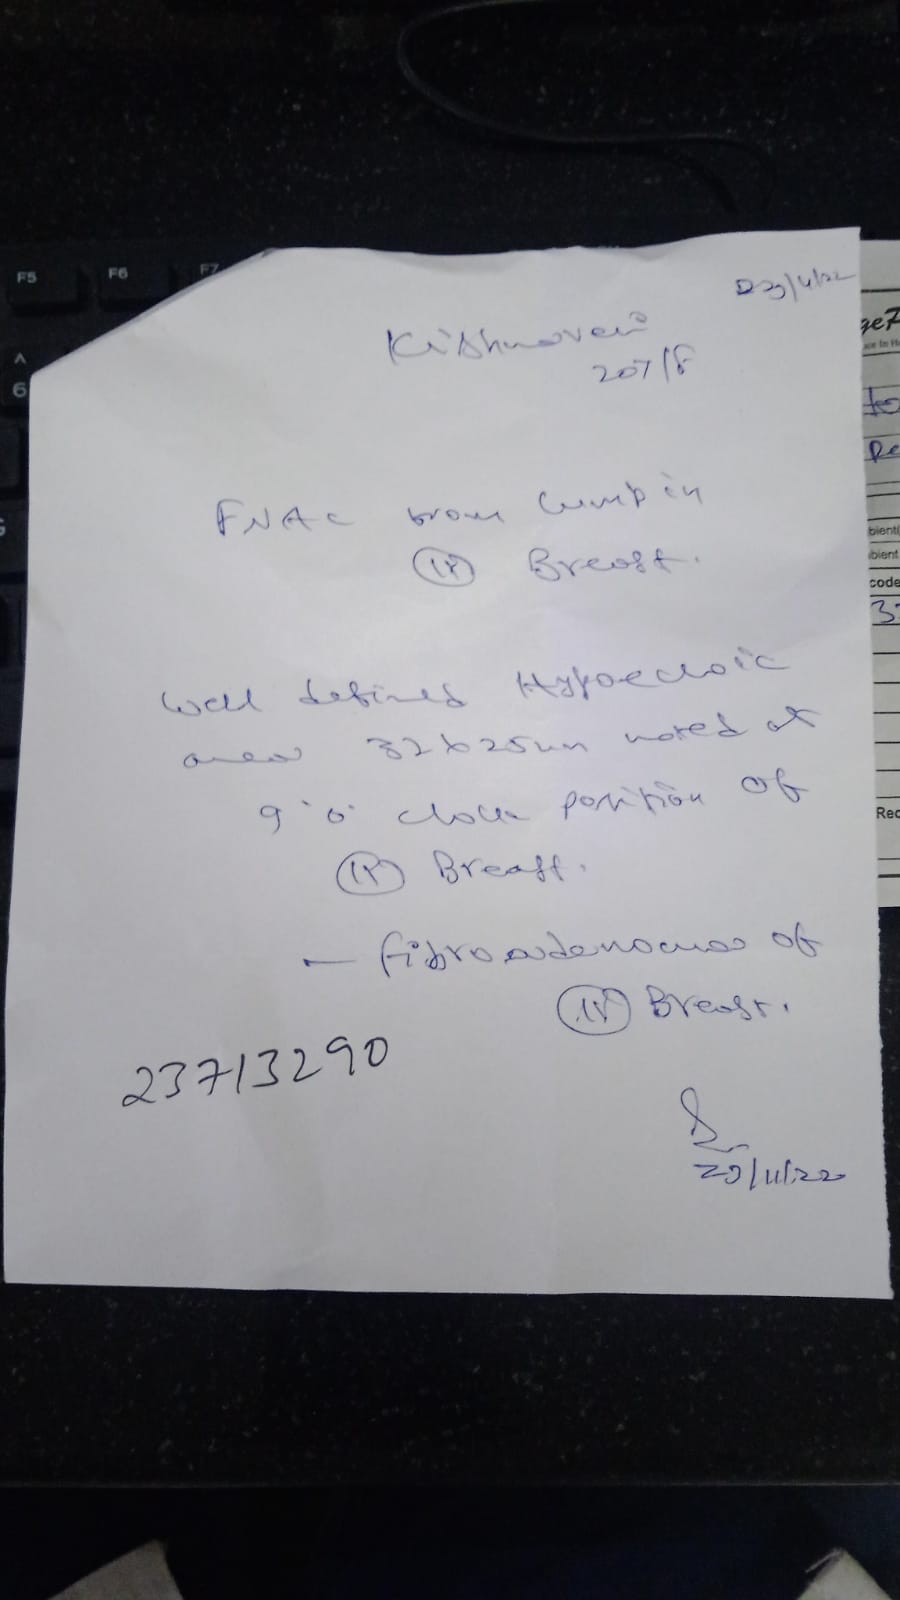 F5 F6 F7
6
23/11/22
Krishnaveni
207/F
FNAC from lump in
(Rt) Breast.
Well defined Hypoechoic
area 32x25mm noted at
9'o' clock position of
(Rt) Breast.
- fibroadenoma of
(Rt) Breast.
23713290
23/11/22
bient
code
Rec